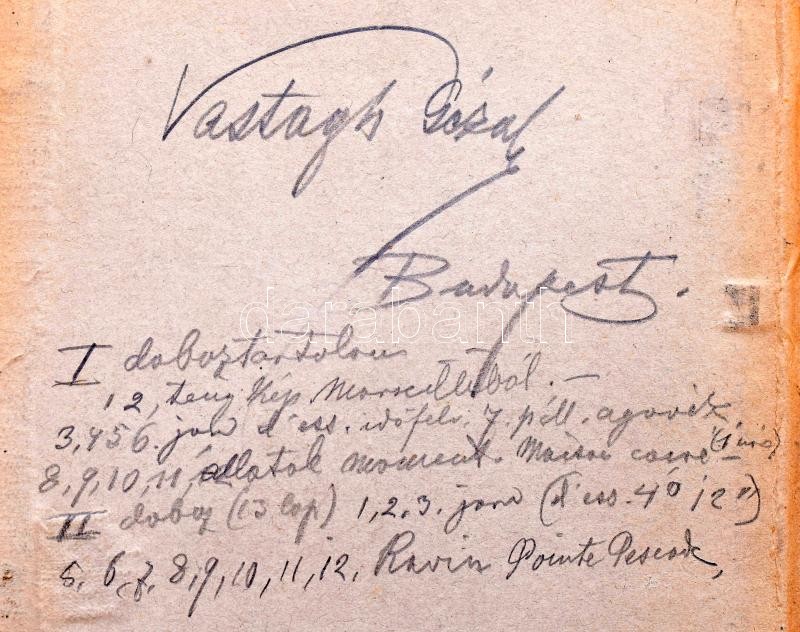 Vastagh Géza
Budapest.
darabanth
I doboz tartalom
1 2, teng kép Marseilleből. –
3, 4 5 6. jard d'ess. időfelv. 7. páll.
8, 9, 10, 11, állatok moment. Maison carré
II doboz (13 lap) 1, 2, 3. jard (d'ess. 4
5, 6, 7, 8, 9, 10, 11, 12, Ravin Pointe Pescade,